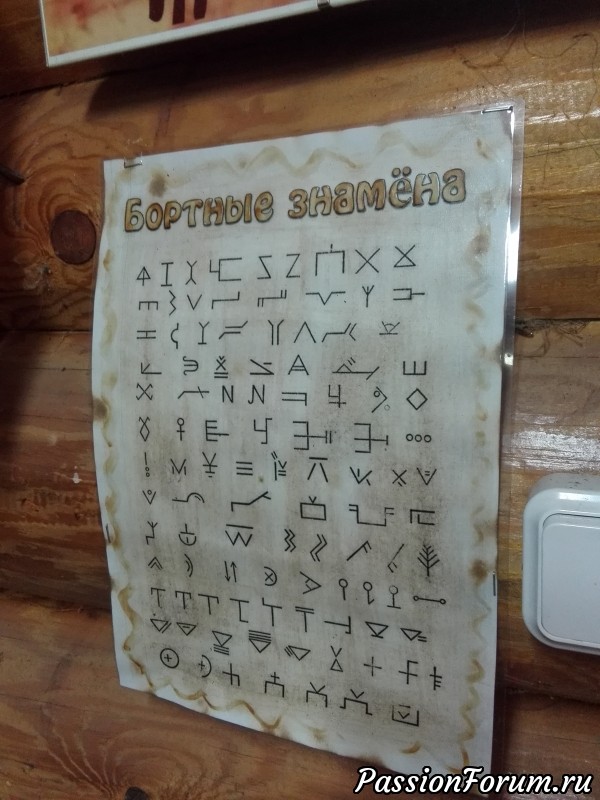 Бортные знамёна
PassionForum.ru